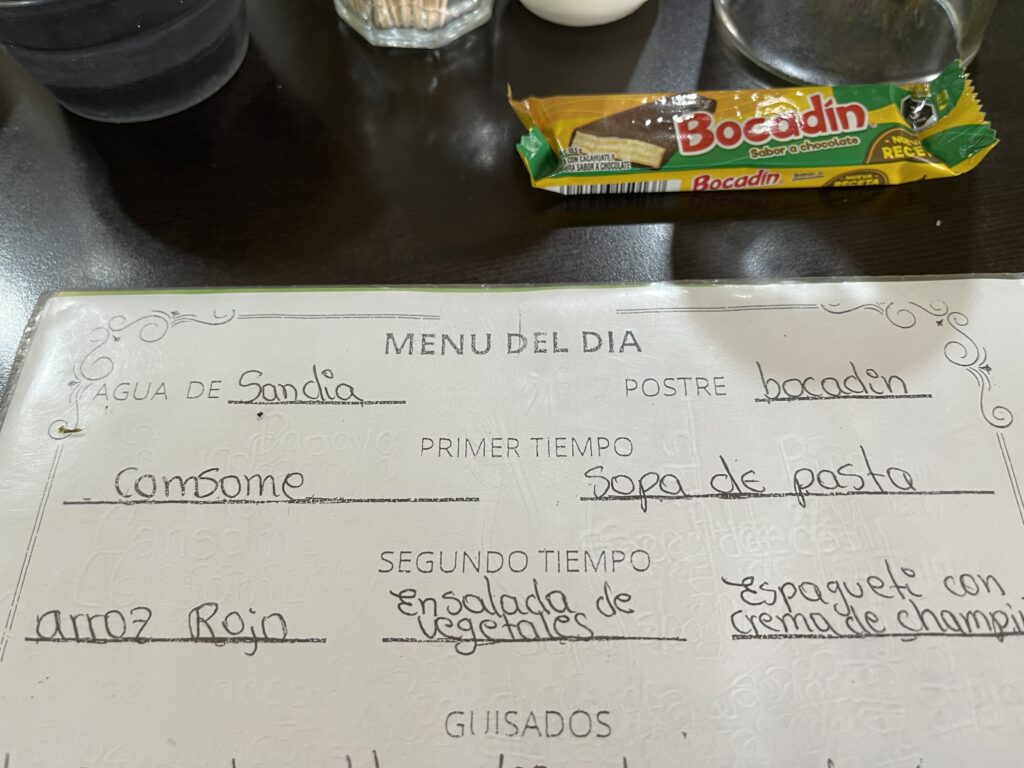 Bocadín
Sabor a chocolate
CON CACAHUATE Y
SABOR A CHOCOLATE
Bocadín
NUEVA
RECETA
MENU DEL DIA
AGUA DE Sandia
POSTRE bocadin
PRIMER TIEMPO
Comsome
Sopa de pasta
SEGUNDO TIEMPO
arroz Rojo
Ensalada de
vegetales
Espagueti con
crema de champi
GUISADOS